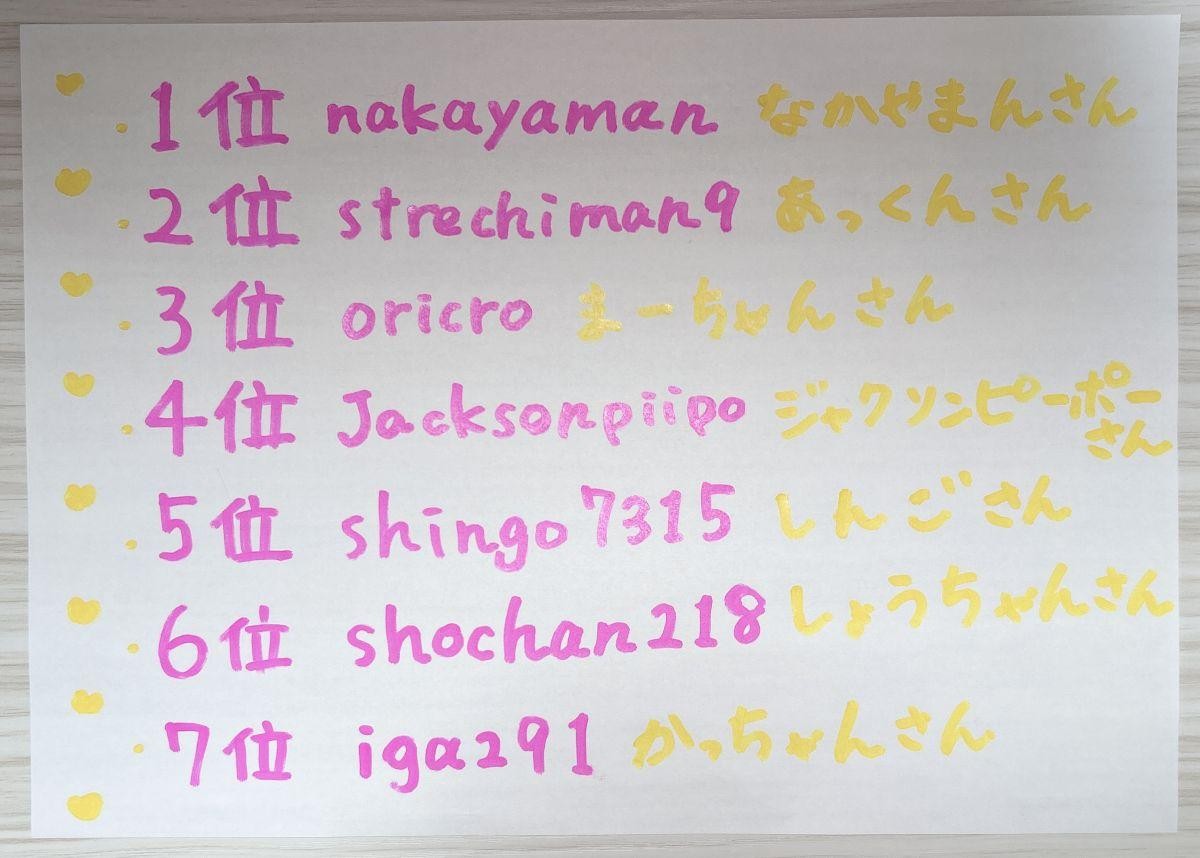 1位 nakayaman なかやまんさん
2位 strechiman9 あっくんさん
3位 oricro まーちゃんさん
4位 Jacksonpiipo ジャクソンピーポー
さん
5位 shingo7315 しんごさん
6位 shochan218 しょうちゃんさん
7位 iga291 かっちゃんさん